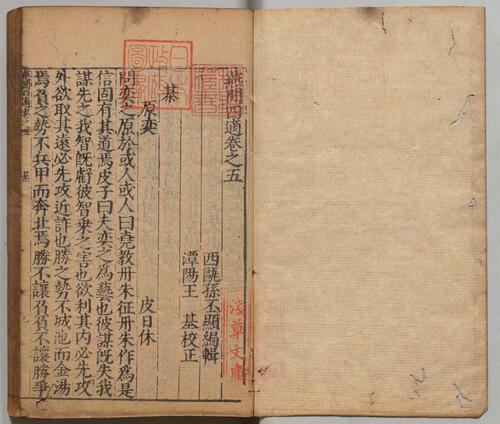 燕閒四適卷之五
西甌孫丕顯編輯
潭陽王　基校正
棊
原奕
皮日休
問奕之原於或人或人曰堯教丹朱征丹朱作焉是
信固有其道焉皮子曰夫奕之為藝也彼謀既失我
謀先之我智既虧彼智乘之害也欲利其內必先攻
外欲取其遠必先攻近詐也勝之勢不城池而金湯
焉負之勢不兵甲而奔北焉勝不讓負負不讓勝爭
棊
淺草文庫